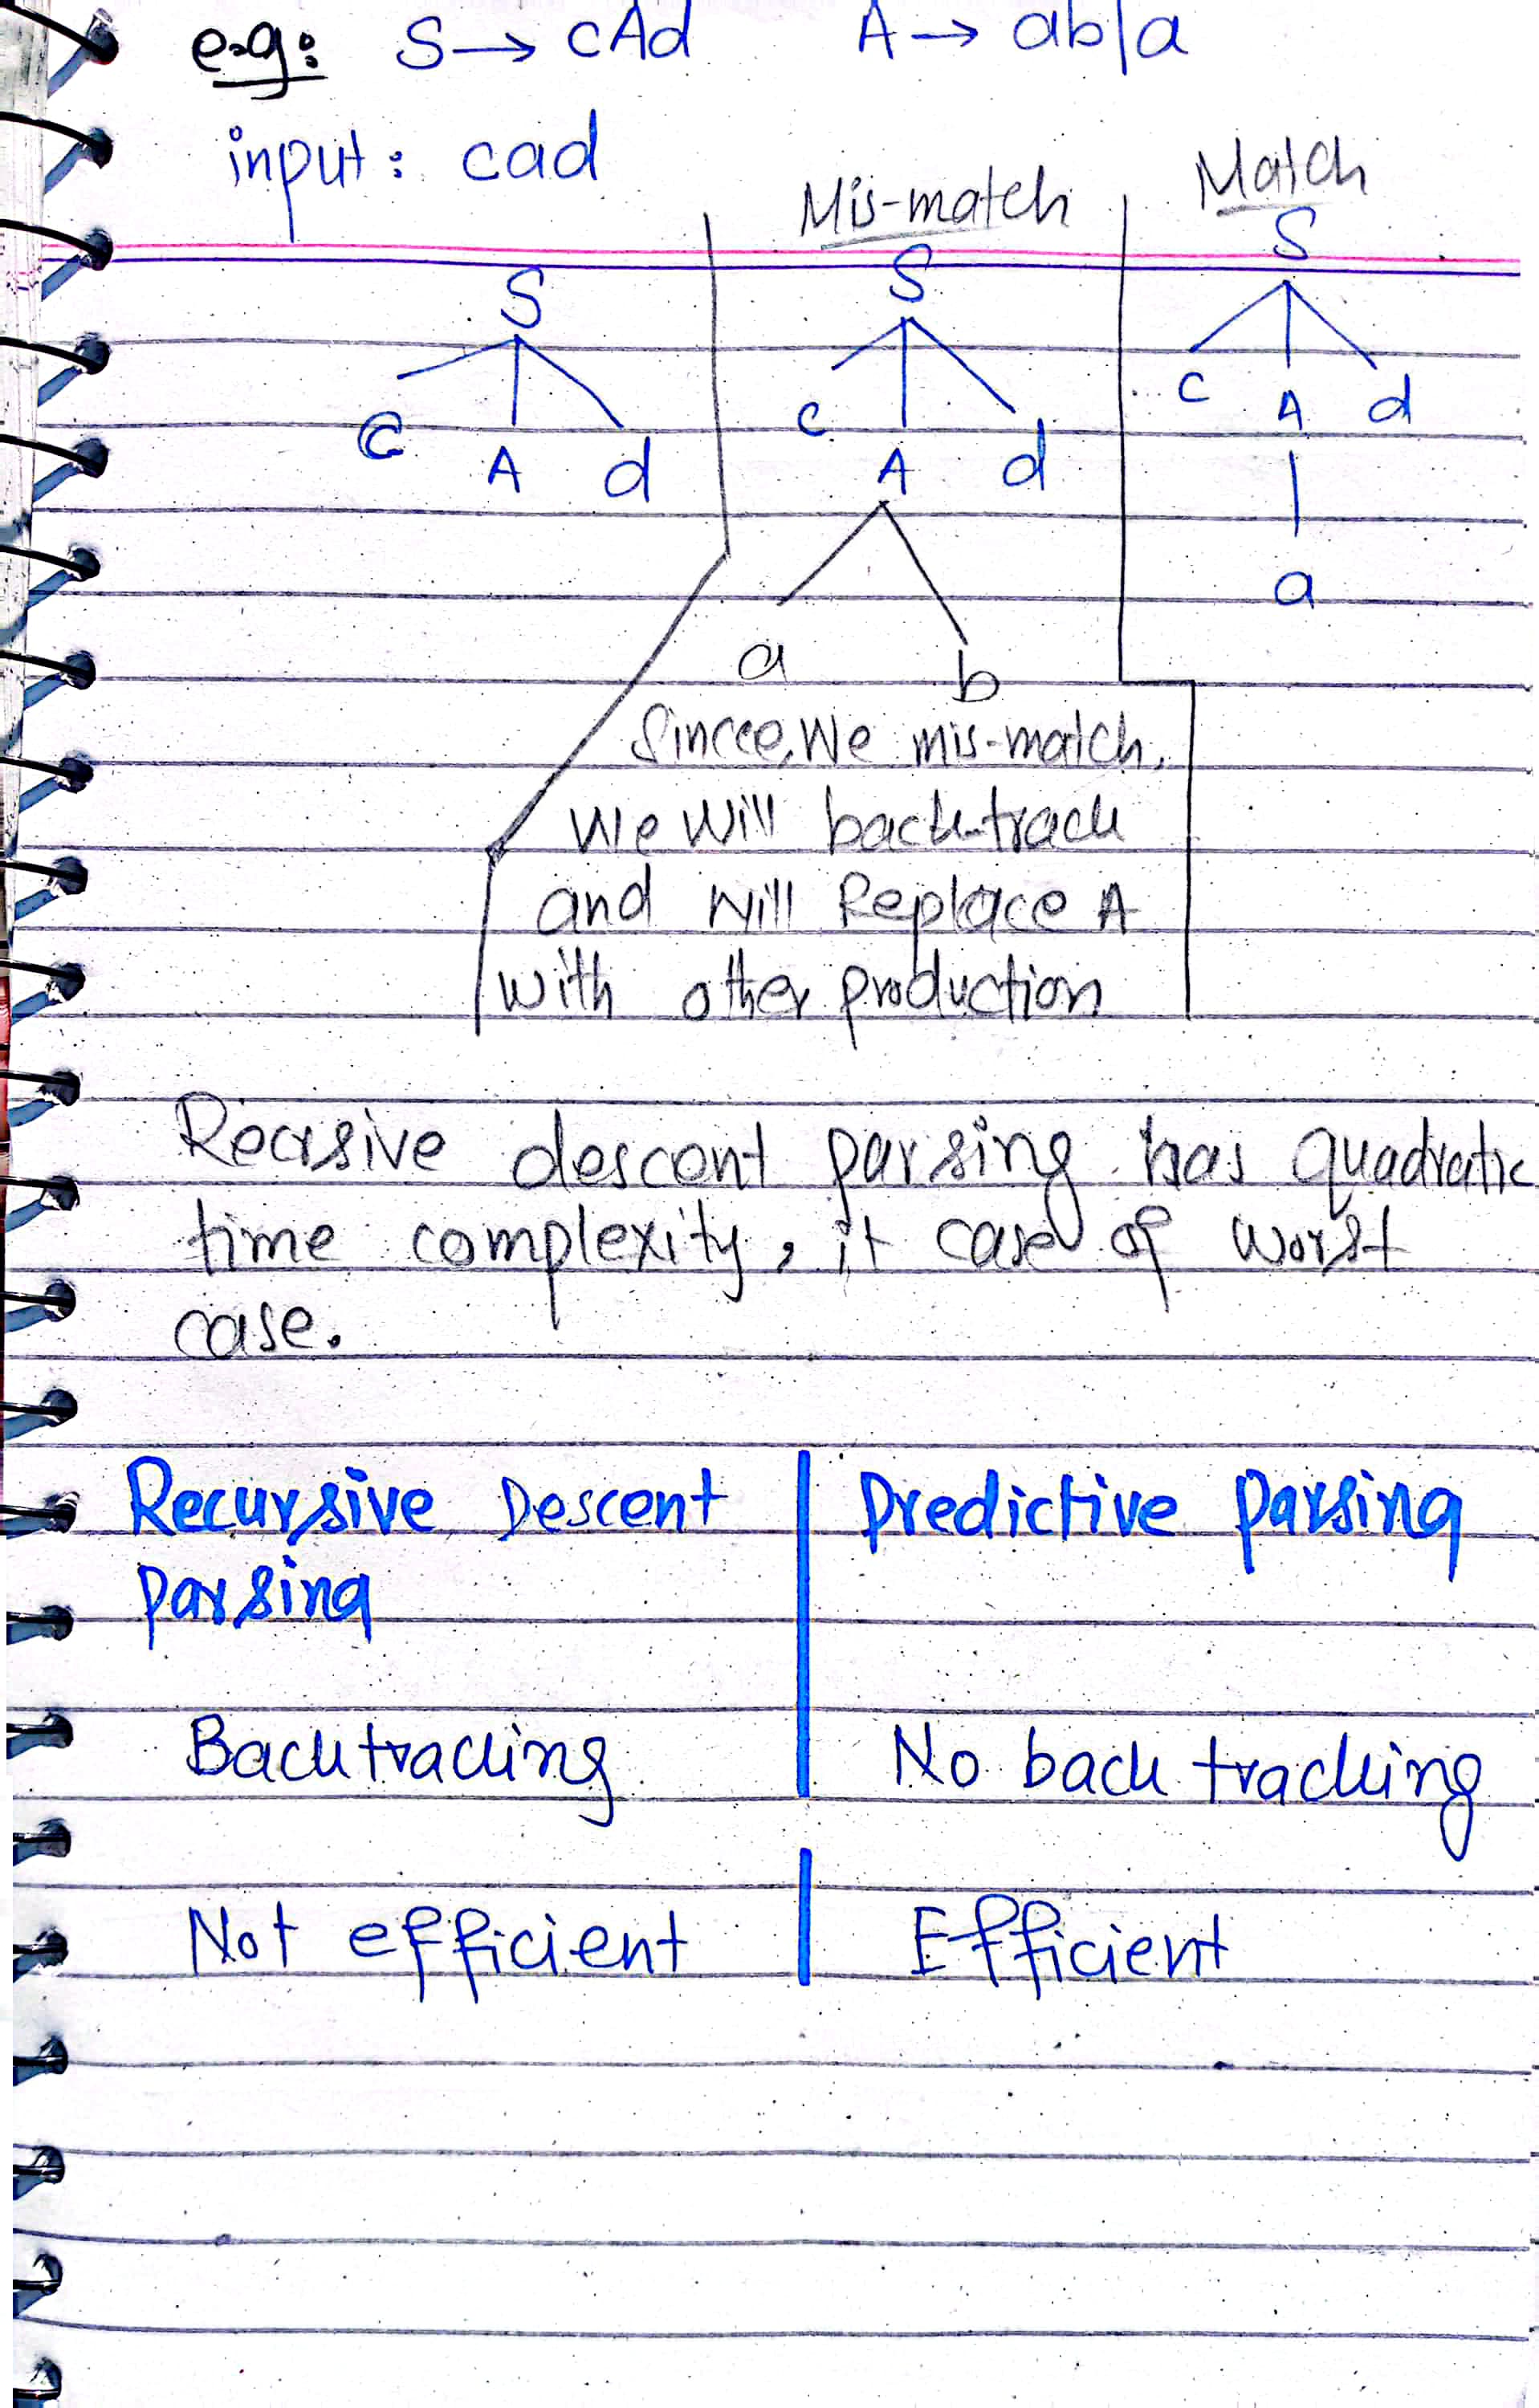 e.g: S → cAd A → ab/a
input: cad
Mis-match
Match
S
c A d
S
c A d
a b
Sincee, We mis-match,
We Will back-track
and Will Replace A
with other production
S
c A d
a
Recrsive descent parsing has quadratic
time complexity, it case of worst
case.
Recursive Descent
Parsing
Predictive Parsing
Backtracking
No back tracking
Not efficient
Efficient